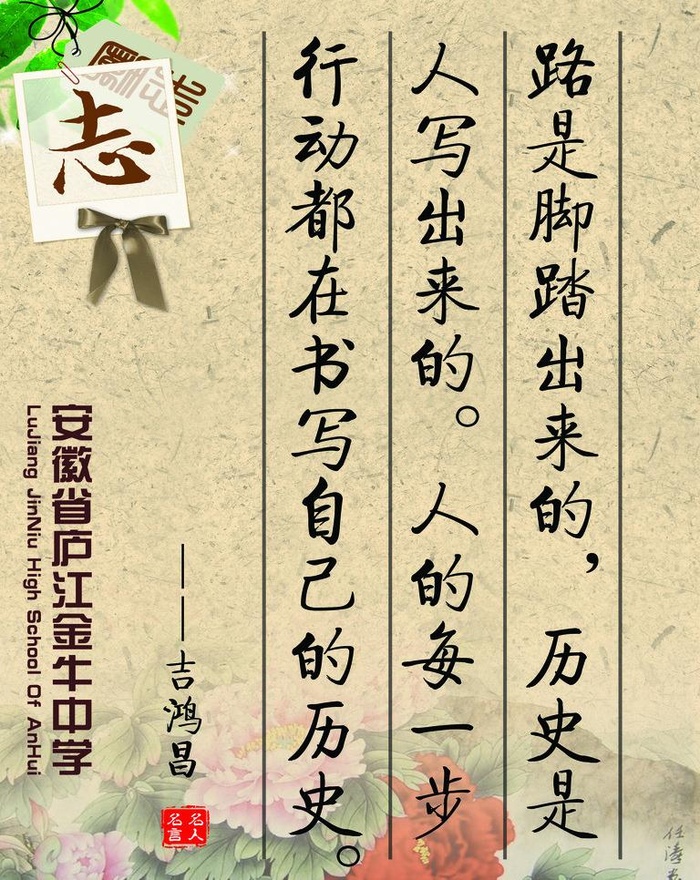 志
路是脚踏出来的，历史是
人写出来的。人的每一步
行动都在书写自己的历史。
——吉鸿昌
名人
名言
安徽省庐江金牛中学
LuJiang JinNiu High School Of AnHui